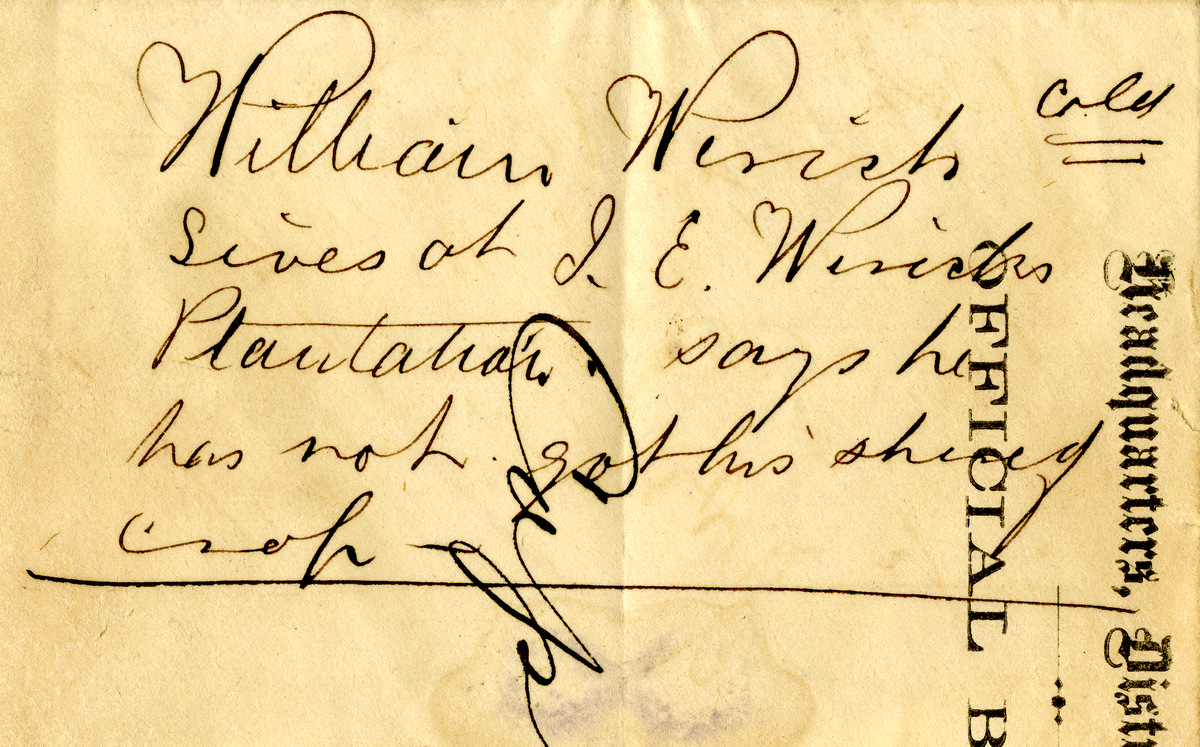 William Wirich Cold
Lives at I. E. Wirichs
Plantation. says he
has not got his
crop
OFFICIAL B
Headquarters, Distr